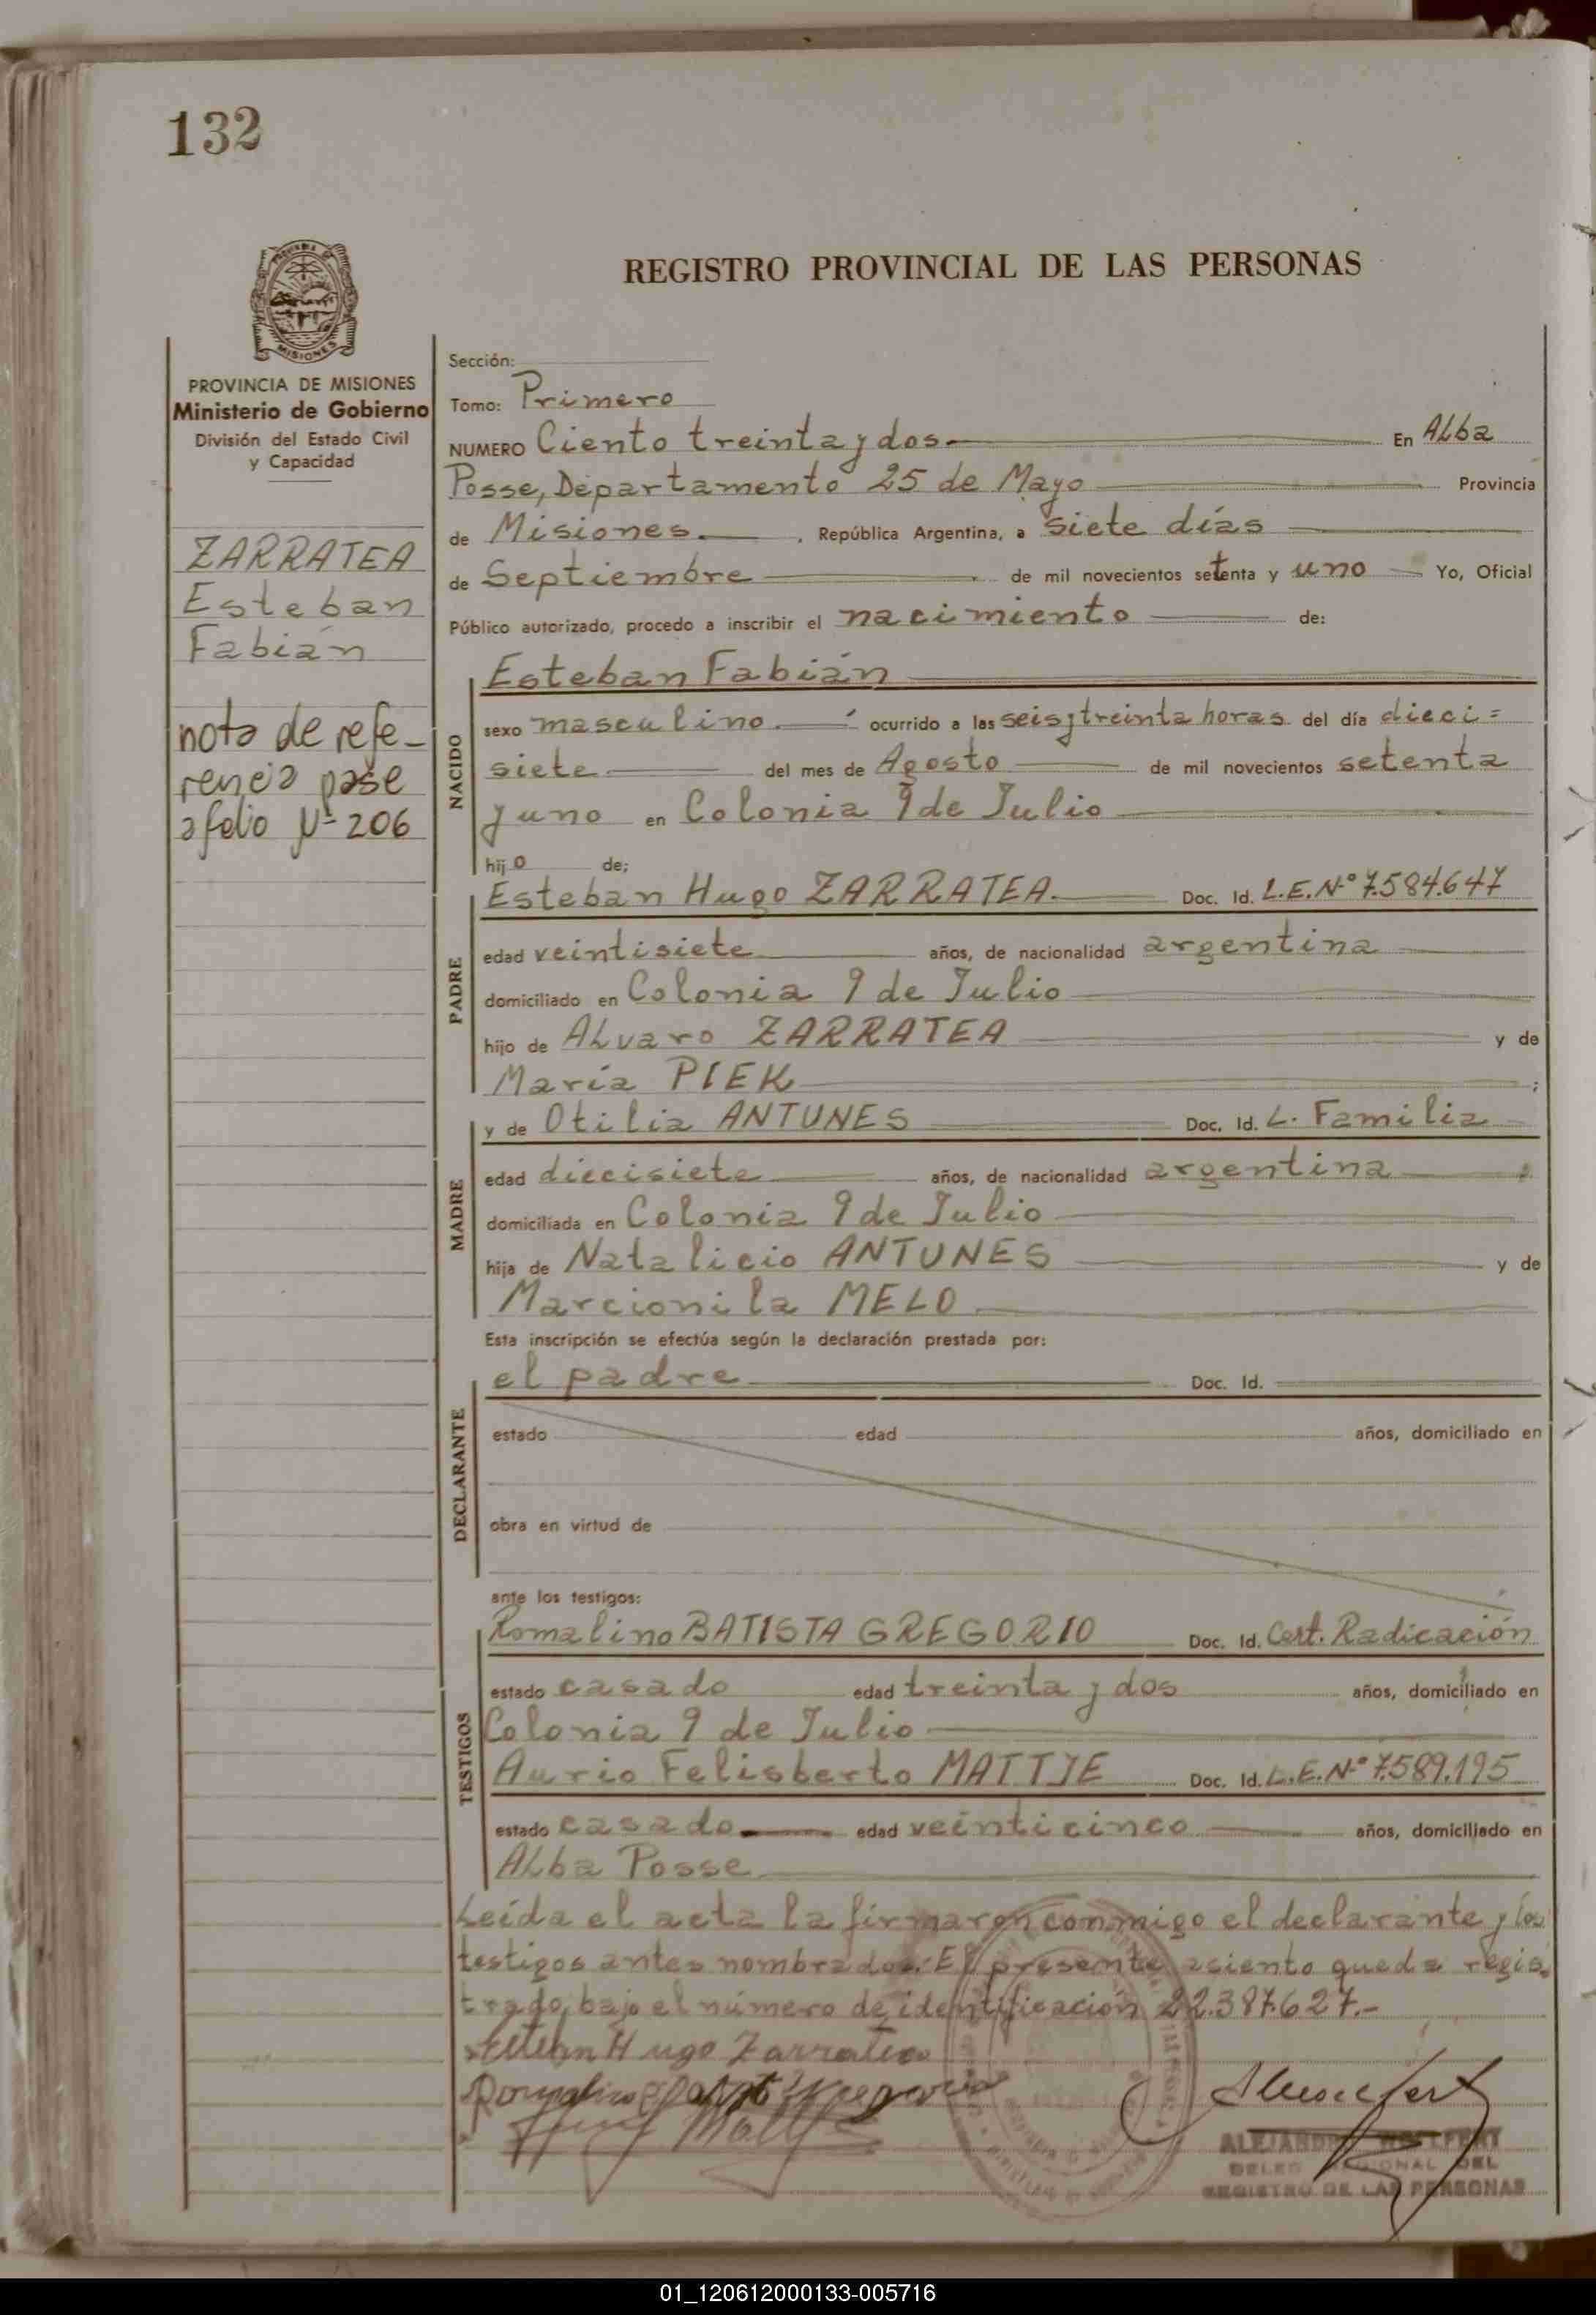 132
PROVINCIA DE
MISIONES
REGISTRO PROVINCIAL DE LAS PERSONAS
PROVINCIA DE MISIONES
Ministerio de Gobierno
División del Estado Civil
y Capacidad
ZARRATEA
Esteban
Fabián
nota de refe-
rencia pase
a folio Nº 206
Sección:
Tomo: Primero
NUMERO Ciento treinta y dos.- En Alba
Posse, Departamento 25 de Mayo Provincia
de Misiones. , República Argentina, a siete días
de Septiembre de mil novecientos setenta y uno Yo, Oficial
Público autorizado, procedo a inscribir el nacimiento de:
NACIDO
Esteban Fabián
sexo masculino. ocurrido a las seis y treinta horas del día dieci=
siete del mes de Agosto de mil novecientos setenta
y uno en Colonia 9 de Julio
hijo de;
PADRE
Esteban Hugo ZARRATEA. Doc. Id. L.E.Nº 7.584.647
edad veintisiete años, de nacionalidad argentina
domiciliado en Colonia 9 de Julio
hijo de Alvaro ZARRATEA y de
María PIEK ;
MADRE
y de Otilia ANTUNES Doc. Id. L. Familia
edad diecisiete años, de nacionalidad argentina
domiciliada en Colonia 9 de Julio
hija de Natalicio ANTUNES y de
Marcionila MELO
Esta inscripción se efectúa según la declaración prestada por:
DECLARANTE
el padre Doc. Id.
estado edad años, domiciliado en
obra en virtud de
ante los testigos:
TESTIGOS
Romalino BATISTA GREGORIO Doc. Id. Cert. Radicación
estado casado edad treinta y dos años, domiciliado en
Colonia 9 de Julio
Aurio Felisberto MATTJE Doc. Id. L.E.Nº 7.589.195
estado casado edad veinticinco años, domiciliado en
Alba Posse
Leída el acta la firmaron conmigo el declarante y los
testigos antes nombrados. El presente asiento queda regis-
trado, bajo el número de identificación 22.387.627.-
Esteban Hugo Zarratea
ALEJANDRO
DELEG REGIONAL DEL
REGISTRO DE LAS PERSONAS
01_120612000133-005716